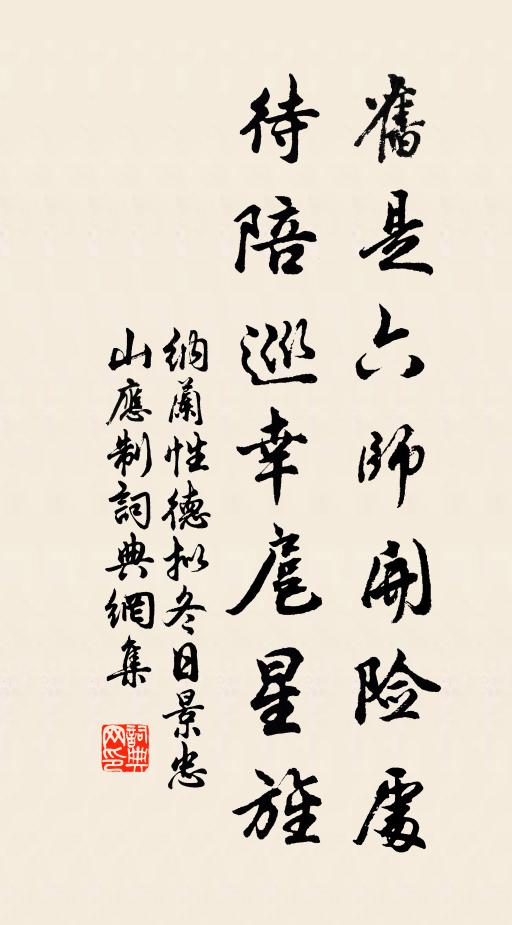 舊是六師開險處
待陪巡幸扈星旌
納蘭性德拟冬日景忠
山應制詞典網集
詞典网印